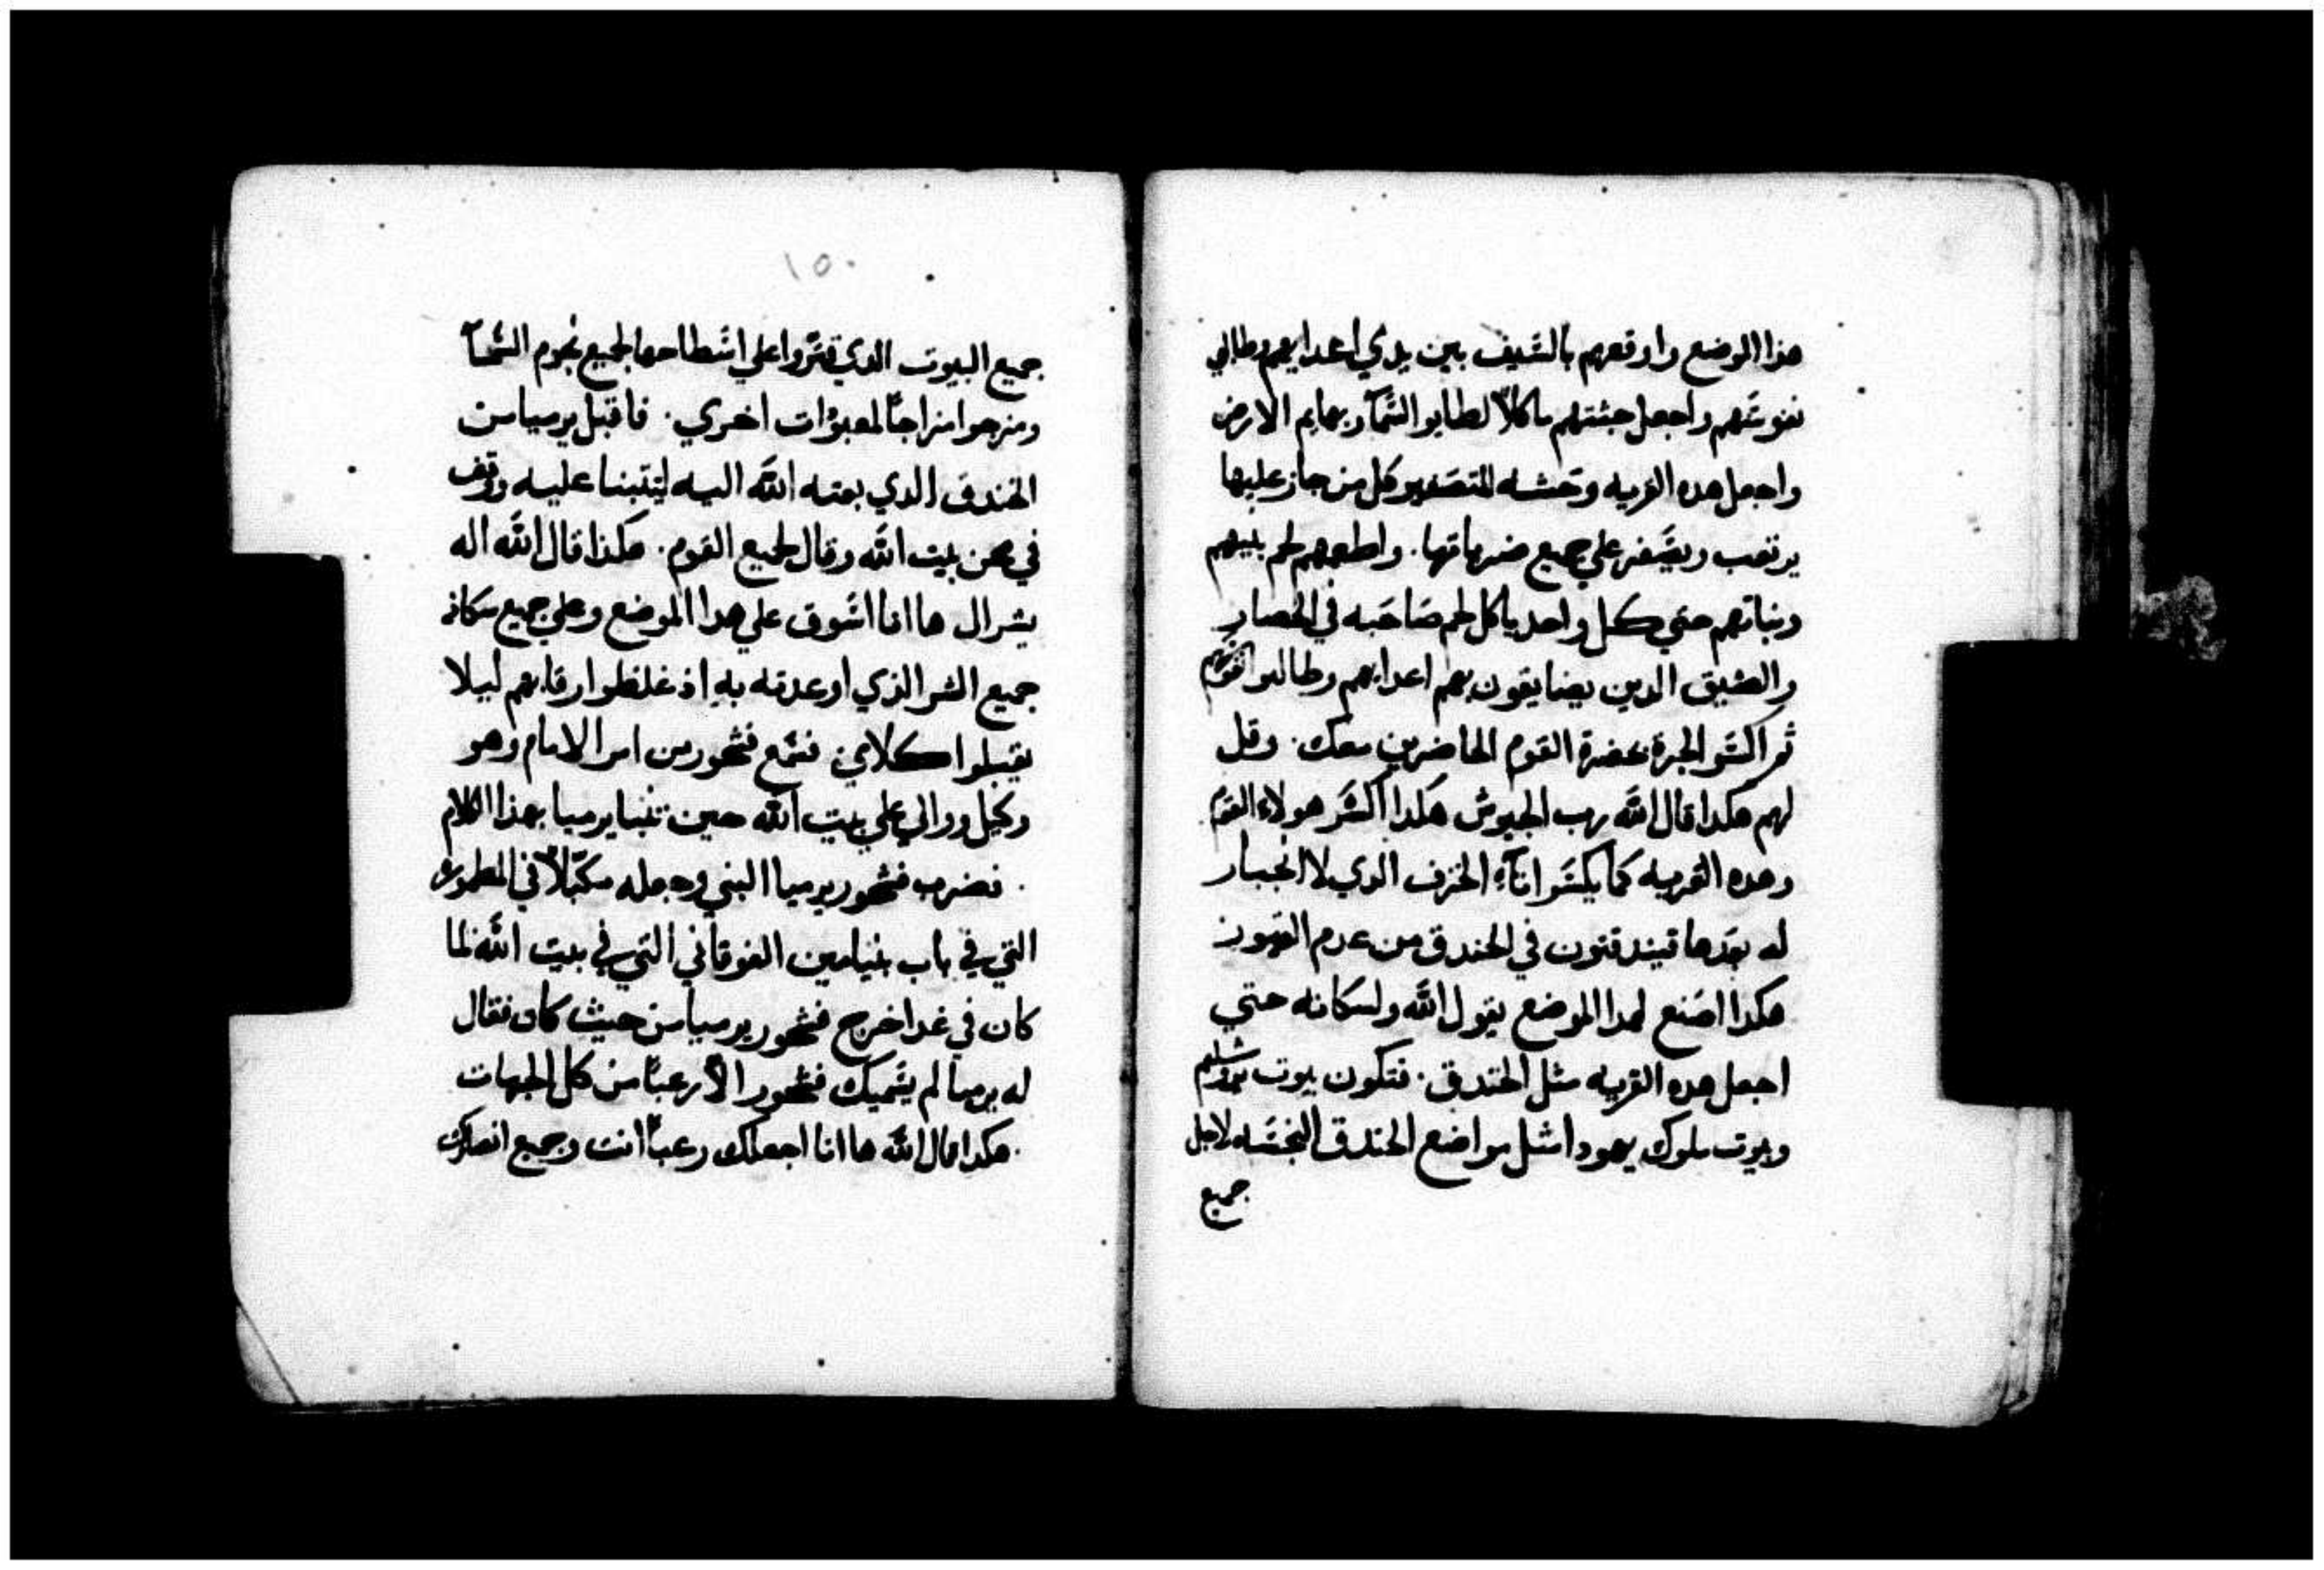 هذا الموضع واوقعهم بالسَيف بين يدي اعدايهم وطالبي
نفوسَهم واجعل جثتهم ماكلاً لطايو السَمآ وبهايم الارض
واجعل هده القريه وحَشه للتصَفير كل من جاز عليها
يرتعب ويصَفر علي جميع ضرباتها. واطعمهم لحم بنيهم
وبناتهم حتي كل واحد ياكل لحم صَاحَبه في الحصار
والضيق الدين يضايقون بهم اعدايهم وطالبوا نفوسَهم
ثم اكسَو الجرة بحضرة القوم الحاضرين معك. وقل
لهم هكدا قال اللَه رب الجيوش هكدا اكسَر هولاء القوم
وهده القريه كما يكسَو انآء الخزف الدي لا انجبار
له بعدها فيندفنون في الخندق من عدم القبور
هكدا اصَنع لهدا الموضع يقول اللَه ولسَكانه حتي
اجعل هده القريه مثل الخندق. فتكون بيوت يروشليم
وبيوت ملوك يهودا مثل مواضع الخندق النجسَه لاجل
جميع
١٥٠
جميع البيوت الدي قتروا علي اسَطاحها لجميع نجوم السَمآ
ومزجوا مزاجاً لمعبوُدات اخري. فاقبل يرميا من
الخندق الدي بعته اللَه اليه ليتنبا عليه ووقف
في صحن بيت اللَه وقال لجميع القوم. هكدا قال اللَه اله
يسرال ها انا اسَوق علي هدا الموضع وعلي جميع سَكانه
جميع الشر الذي اوعدته به اذ غلظوا رقابهم ليلا
يقبلوا كلامي. فسَمع فشحور من امر الامام وهو
وكيل ووالي علي بيت اللَه حين تنبا يرميا بهذا الكلام
. فضرب فشحور يرميا النبي وجعله مكبَلاً في المطموره
التي في باب بنيامين الفوقاني التي في بيت اللَه فلما
كان في غد اخرج فشحور يرميا من حيث كان فقال
له يرميا لم يسَميك فشحور الاّ رعباً من كل الجهات
. هكدا قال اللَه ها انا اجعلك رعباً انت وجميع انصارك